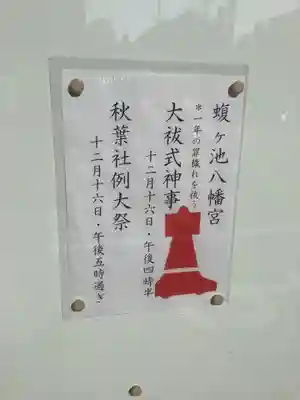 蝮ヶ池八幡宮
*一年の罪穢れを祓う
大祓式神事
十二月十六日・午後四時半
秋葉社例大祭
十二月十六日・午後五時過ぎ